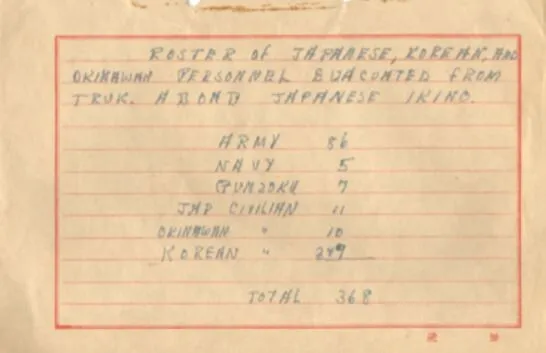 ROSTER OF JAPANESE, KOREAN, AND
OKINAWAN PERSONNEL EVACUATED FROM
TRUK. ABOARD JAPANESE IKINO.
ARMY 86
NAVY 5
GUNZOKU 7
JAP CIVILIAN 11
OKINAWAN " 10
KOREAN " 249
TOTAL 368